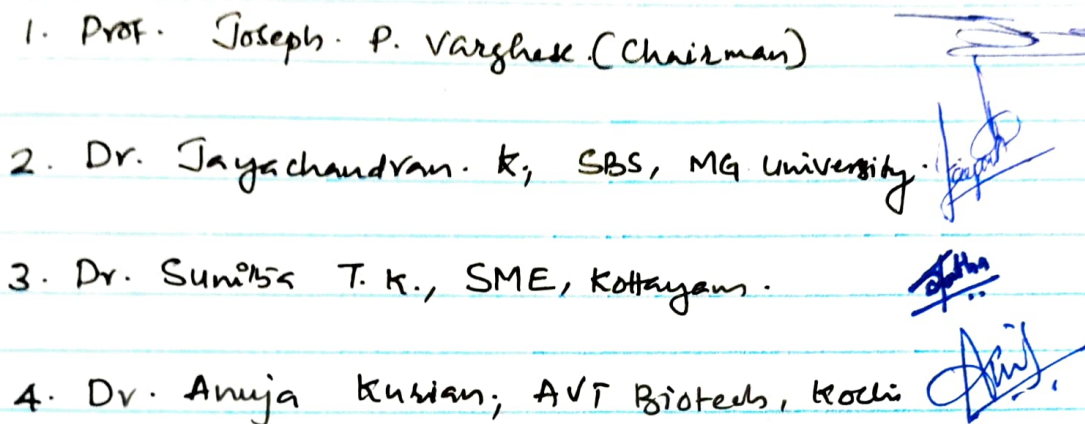 1. Prof. Joseph. P. Varghese. (Chairman)
2. Dr. Jayachandran. K, SBS, MG University.
3. Dr. Sunitha T. K., SME, Kottayam.
4. Dr. Anuja Kurian, AVT Biotech, Kochi